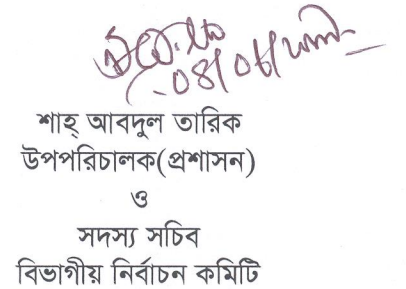 শাহ্ আবদুল তারিক
উপপরিচালক(প্রশাসন)
ও
সদস্য সচিব
বিভাগীয় নির্বাচন কমিটি